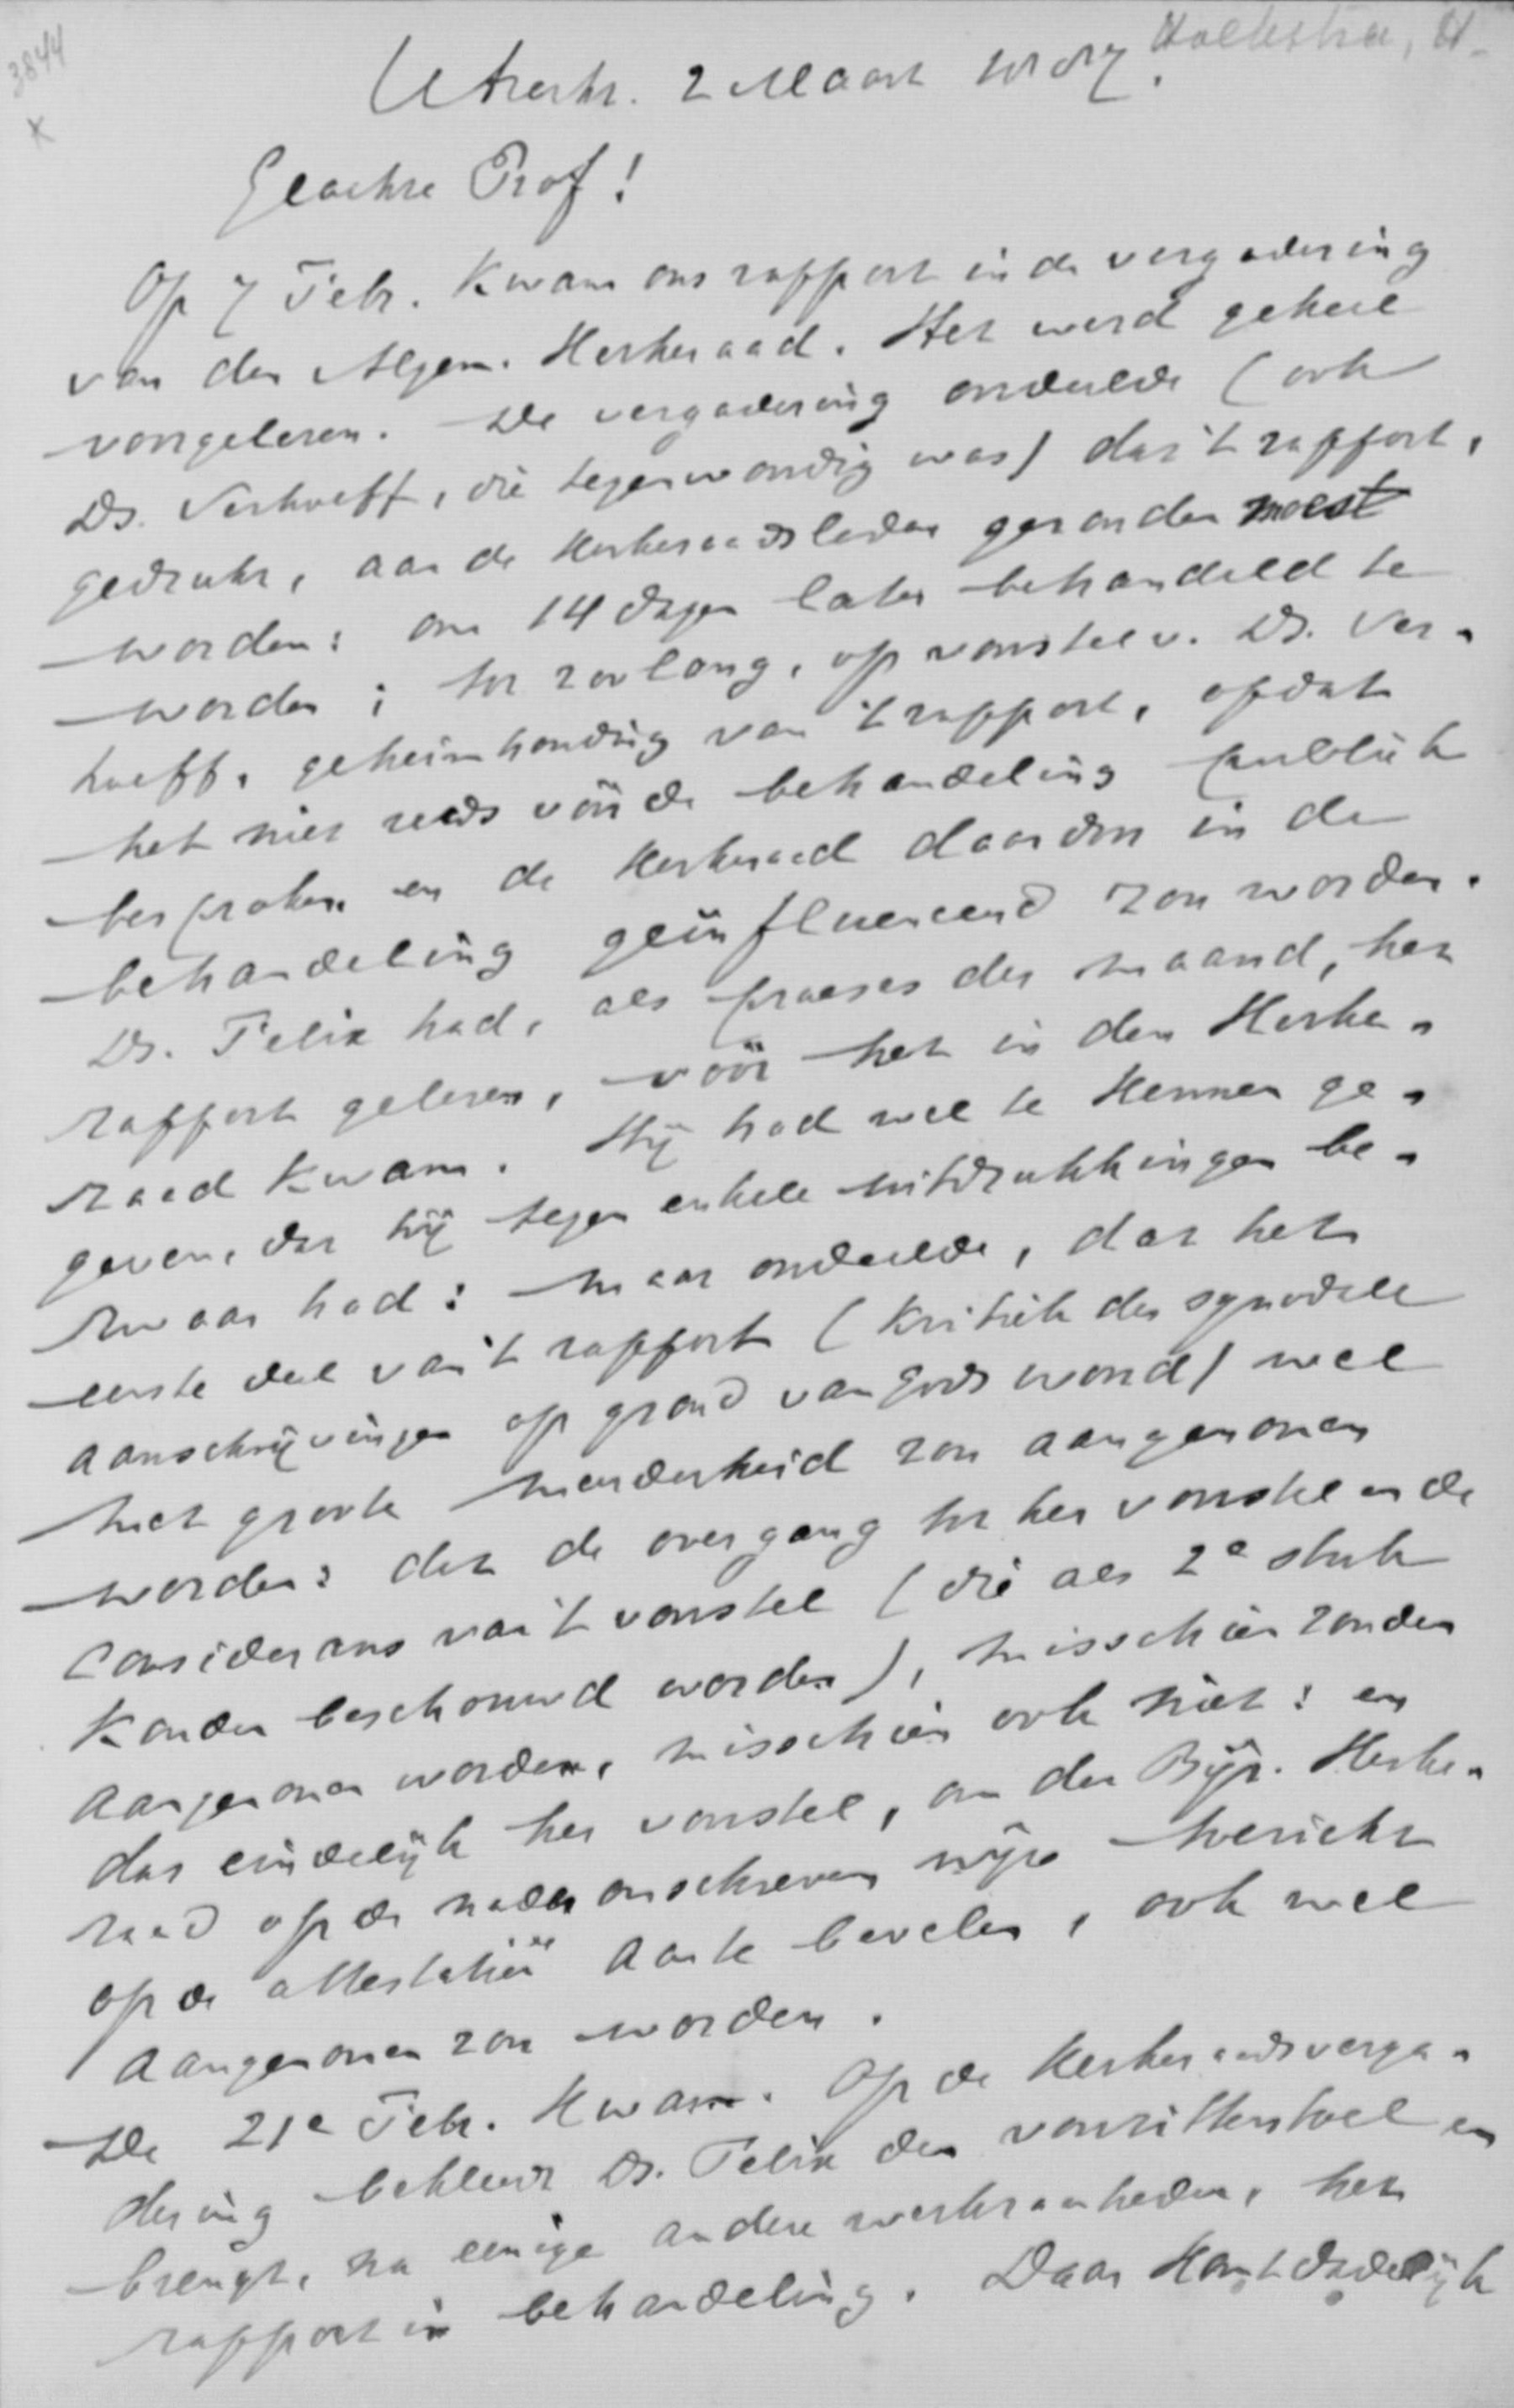 3844
x
Hoekstra, H.
Utrecht. 2 Maart
Geachte Prof!
Op 7 Febr. kwam ons rapport in de vergadering
van den Algem. Kerkeraad. Het werd geheel
voorgelezen. De vergadering oordeelde (ook
Ds. Verhoeff, die tegenwoordig was) dat 't rapport,
gedrukt, aan de kerkeraadsleden gezonden moest
worden: om 14 dagen later behandeld te
worden; tot zoolang, op voorstel v. Ds. Ver-
hoeff, geheimhouding van 't rapport, opdat
het niet reeds vóór de behandeling publiek
besproken en de kerkeraad daardoor in de
behandeling geïnfluenceerd zou worden.
Ds. Felix had, als praeses der maand, het
rapport gelezen, vóór het in den Kerke-
raad kwam. Hij had wel te kennen ge-
geven, dat hij tegen enkele uitdrukkingen be-
zwaar had: maar oordeelde, dat het
eerste deel van 't rapport (kritiek der synodale
aanschrijvingen op grond van Gods woord) wel
met groote meerderheid zou aangenomen
worden: dat de overgang tot het voorstel en de
considerans van 't voorstel (die als 2e stuk
konden beschouwd worden), misschien zouden
aangenomen worden, misschien ook niet: en
dat eindelijk het voorstel, om den Bijz. Kerke-
raad op de nader omschreven wijze toezicht
op de attestatiën aan te bevelen, ook wel
aangenomen zou worden.
De 21e Febr. kwam. Op de kerkeraadsverga-
dering bekleedt Ds. Felix den voorzittersstoel en
brengt, na eenige andere werkzaamheden, het
rapport in behandeling. Daar komt dadelijk